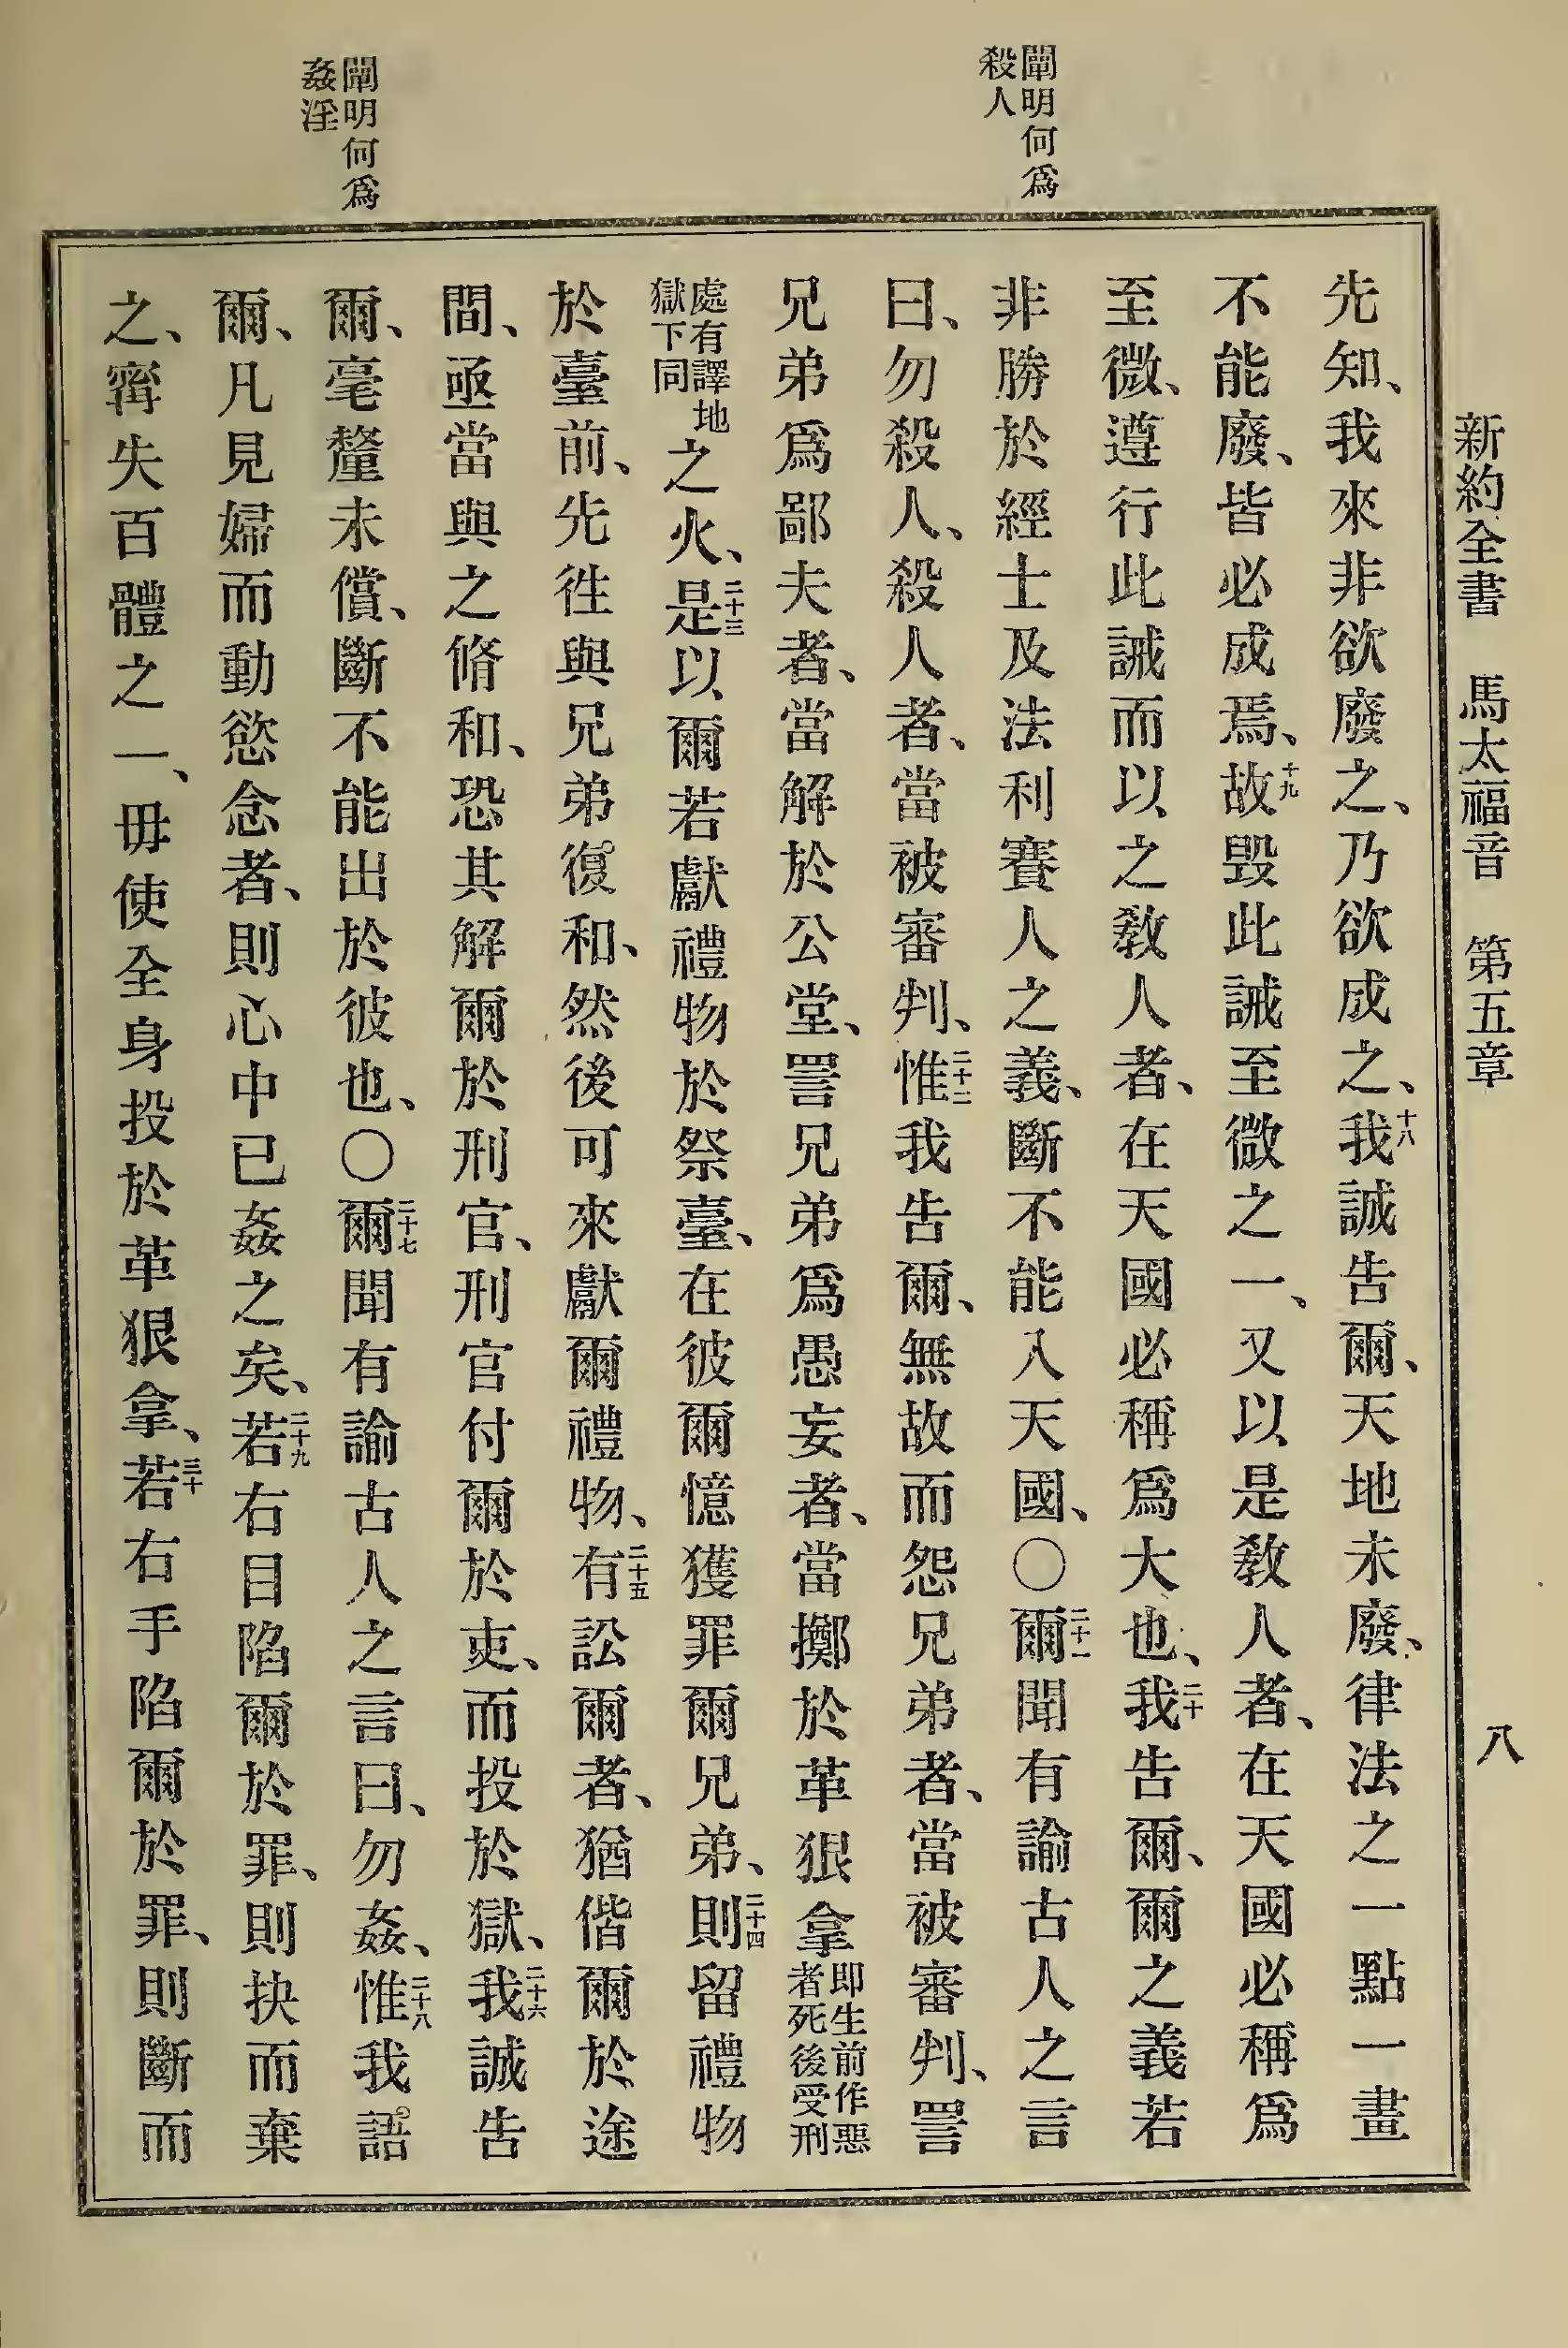 新約全書　馬太福音　第五章　八
闡明何爲
殺人
闡明何爲
姦淫
先知、我來非欲廢之、乃欲成之、十八我誠告爾、天地未廢、律法之一點一畫
不能廢、皆必成焉、十九故毀此誡至微之一、又以是敎人者、在天國必稱爲
至微、遵行此誡而以之敎人者、在天國必稱爲大也、二十我告爾、爾之義若
非勝於經士及法利賽人之義、斷不能入天國、〇二十一爾聞有諭古人之言
曰、勿殺人、殺人者、當被審判、二十二惟我告爾、無故而怨兄弟者、當被審判、詈
兄弟爲鄙夫者、當解於公堂、詈兄弟爲愚妄者、當擲於革狠拿即生前作惡者死後受刑
處有譯地獄下同之火、二十三是以爾若獻禮物於祭臺、在彼爾憶獲罪爾兄弟、二十四則留禮物
於臺前、先徃與兄弟復和、然後可來獻爾禮物、二十五有訟爾者、猶偕爾於途
間、亟當與之脩和、恐其解爾於刑官、刑官付爾於吏、而投於獄、二十六我誠告
爾、毫釐未償、斷不能出於彼也、〇二十七爾聞有諭古人之言曰、勿姦、二十八惟我語
爾、凡見婦而動慾念者、則心中已姦之矣、二十九若右目陷爾於罪、則抉而棄
之、寗失百體之一、毋使全身投於革狠拿、三十若右手陷爾於罪、則斷而